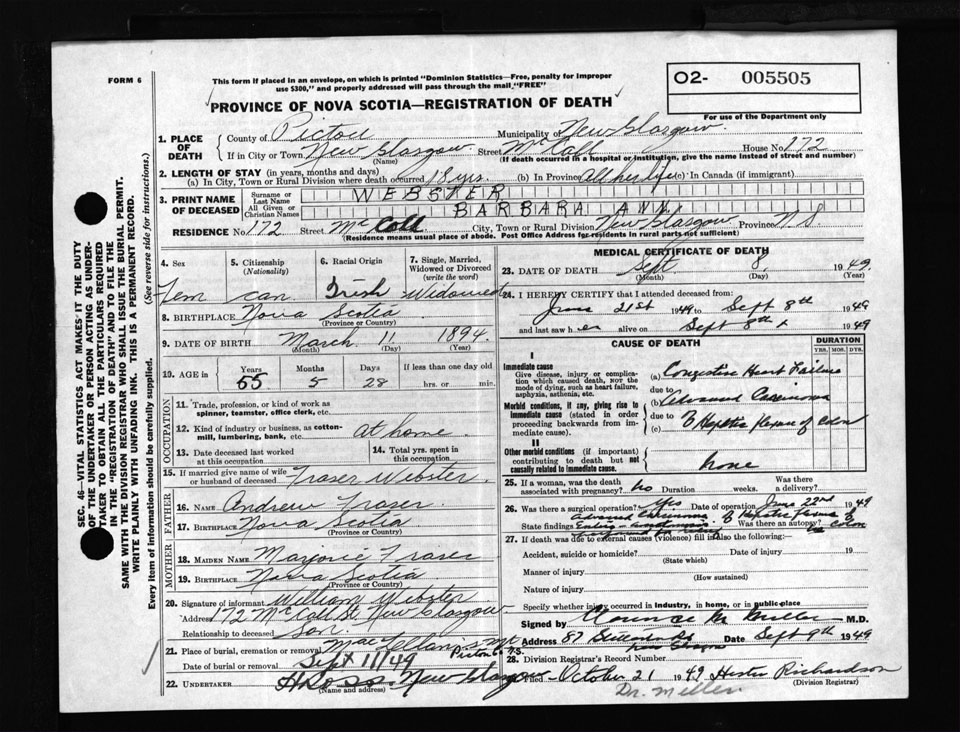 FORM 6
This form if placed in an envelope, on which is printed "Dominion Statistics—Free, penalty for improper
use $300," and properly addressed will pass through the mail "FREE"
O2- 005505
For use of the Department only
PROVINCE OF NOVA SCOTIA—REGISTRATION OF DEATH
1. PLACE OF DEATH
County of Pictou Municipality of New Glasgow.
If in City or Town New Glasgow Street McColl House No. 172
(Name) (If death occurred in a hospital or institution, give the name instead of street and number)
2. LENGTH OF STAY (in years, months and days)
(a) In City, Town or Rural Division where death occurred 18 yrs. (b) In Province All her life (c) In Canada (if immigrant)
3. PRINT NAME OF DECEASED
Surname or Last Name WEBSTER
All Given or Christian Names BARBARA ANN
RESIDENCE No. 172 Street McColl City, Town or Rural Division New Glasgow Province N.S
(Residence means usual place of abode. Post Office Address for residents in rural parts not sufficient)
4. Sex Fem
5. Citizenship (Nationality) can
6. Racial Origin Irish
7. Single, Married, Widowed or Divorced (write the word) Widowed
8. BIRTHPLACE Nova Scotia
(Province or Country)
9. DATE OF BIRTH March 11 1894
(Month) (Day) (Year)
10. AGE in Years 55 Months 5 Days 28 If less than one day old
hrs. or min.
OCCUPATION
11. Trade, profession, or kind of work as
spinner, teamster, office clerk, etc.
12. Kind of industry or business, as cotton-
mill, lumbering, bank, etc. At home
13. Date deceased last worked
at this occupation
14. Total yrs. spent in
this occupation
15. If married give name of wife
or husband of deceased Fraser Webster
FATHER
16. NAME Andrew Fraser
17. BIRTHPLACE Nova Scotia
(Province or Country)
MOTHER
18. MAIDEN NAME Marjorie Fraser
19. BIRTHPLACE Nova Scotia
(Province or Country)
20. Signature of informant William Webster
Address 172 McColl St. New Glasgow
Relationship to deceased son
21. Place of burial, cremation or removal Mt
Pictou Co N.S.
Date of burial or removal Sept 11/49
22. UNDERTAKER H Ross, New Glasgow
(Name and address)
MEDICAL CERTIFICATE OF DEATH
23. DATE OF DEATH Sept. 8, 1949
(Month) (Day) (Year)
24. I HEREBY CERTIFY that I attended deceased from:
June 21st 1949 to Sept 8th 1949
and last saw her alive on Sept 8th 1949
CAUSE OF DEATH
DURATION
YRS. MOS. DYS.
I
Immediate cause
Give disease, injury or complica-
tion which caused death, NOT the
mode of dying, such as heart failure,
asphyxia, asthenia, etc.
(a) Congestive Heart Failure
due to
Morbid conditions, if any, giving rise to
immediate cause (stated in order
proceeding backwards from im-
mediate cause).
(b) Advanced Carcinoma
due to
(c) Hepatic Flexure of Colon
II
Other morbid conditions (if important)
contributing to death but not
causally related to immediate cause.
None
25. If a woman, was the death
associated with pregnancy? No Duration weeks Was there
a delivery?
26. Was there a surgical operation? Yes Date of operation June 22nd 1949
State findings Advanced Carcinoma Hepatic Flexure Colon
Was there an autopsy?
27. If death was due to external causes (violence) fill in also the following:
Accident, suicide or homicide? Date of injury 19
(State which)
Manner of injury
(How sustained)
Nature of injury
Specify whether injury occurred in industry, in home, or in public place
Signed by Clarence M Miller M.D.
Address 87 Date Sept 9th 1949
28. Division Registrar's Record Number
Filed October 21 1949 Hester Richardson
(Division Registrar)
Dr. Miller
SEC. 46—VITAL STATISTICS ACT MAKES IT THE DUTY
OF THE UNDERTAKER OR PERSON ACTING AS UNDER-
TAKER TO OBTAIN ALL THE PARTICULARS REQUIRED
IN THE "REGISTRATION OF DEATH" AND TO FILE THE
SAME WITH THE DIVISION REGISTRAR WHO SHALL ISSUE THE BURIAL PERMIT.
WRITE PLAINLY WITH UNFADING INK. THIS IS A PERMANENT RECORD.
Every item of information should be carefully supplied.
(See reverse side for instructions.)